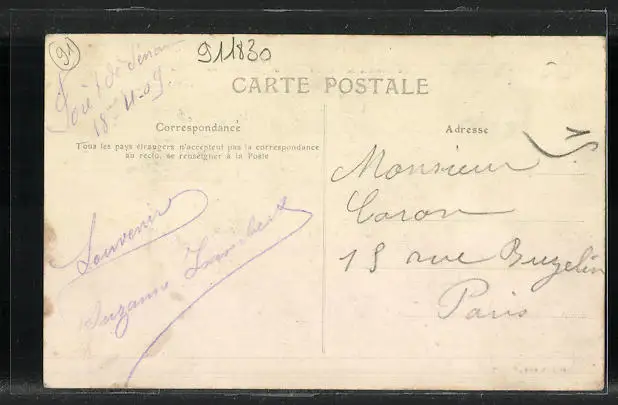 91
911830
18 11-09
CARTE POSTALE
Correspondance
Tous les pays étrangers n'acceptent pas la correspondance
au recto, se renseigner à la Poste
Adresse
Souvenir
Suzanne
Monsieur
Caron
15 rue Buzelin
Paris